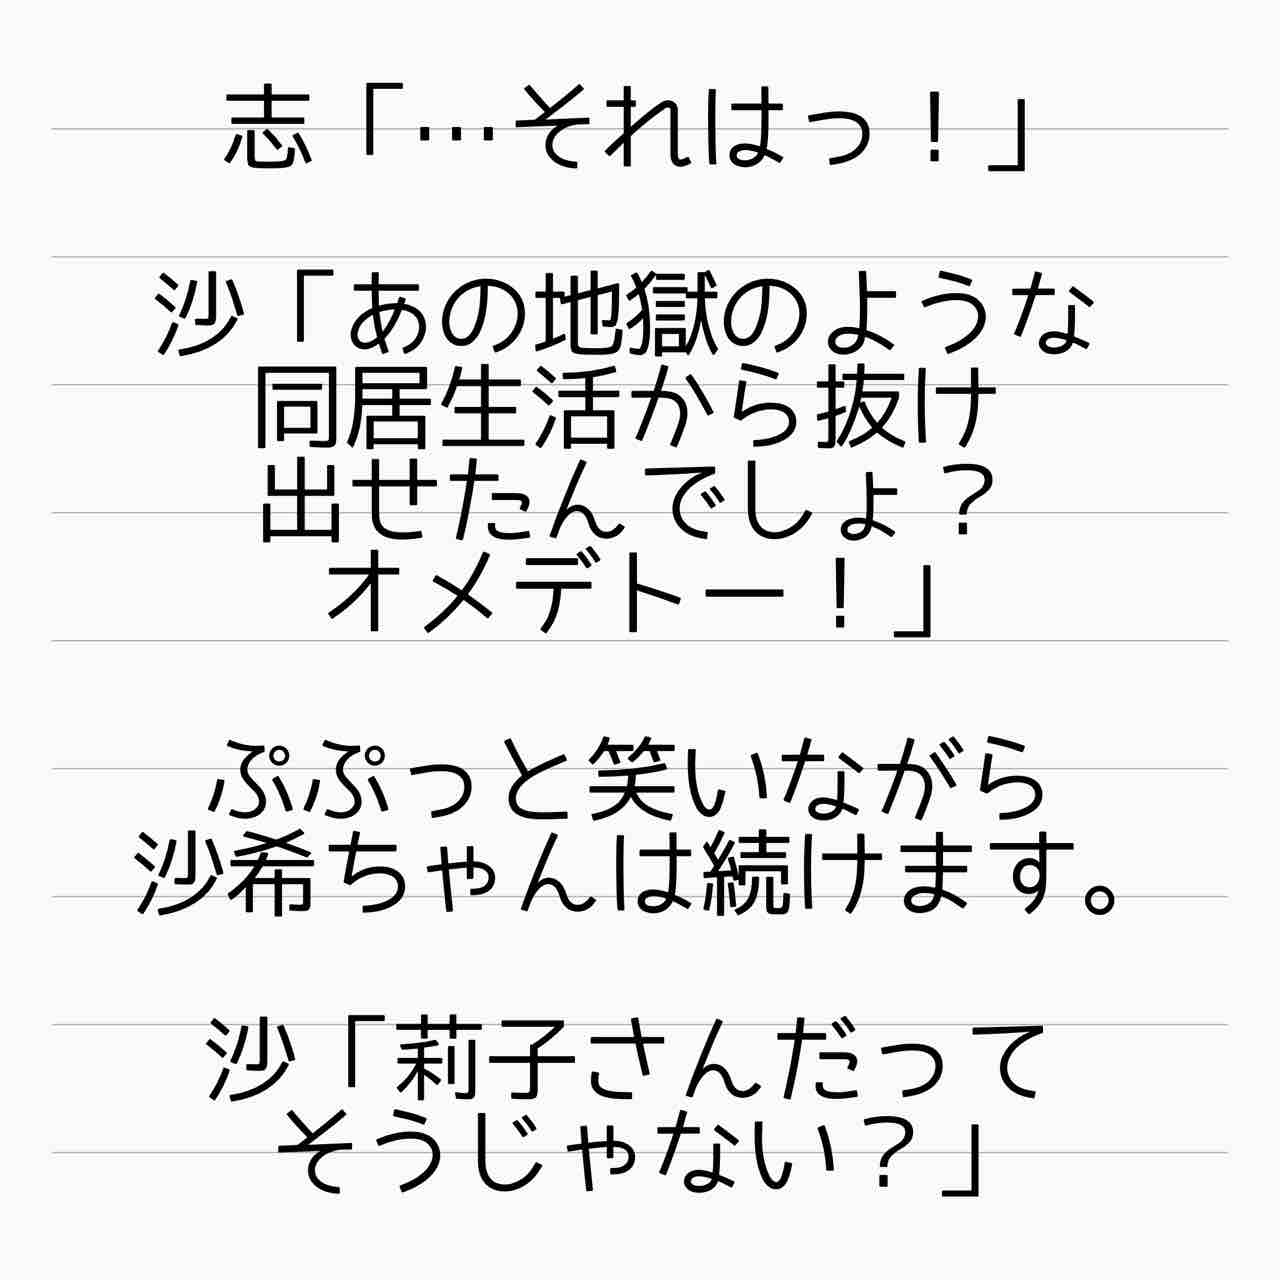 志「…それはっ！」
沙「あの地獄のような
同居生活から抜け
出せたんでしょ？
オメデトー！」
ぷぷっと笑いながら
沙希ちゃんは続けます。
沙「莉子さんだって
そうじゃない？」